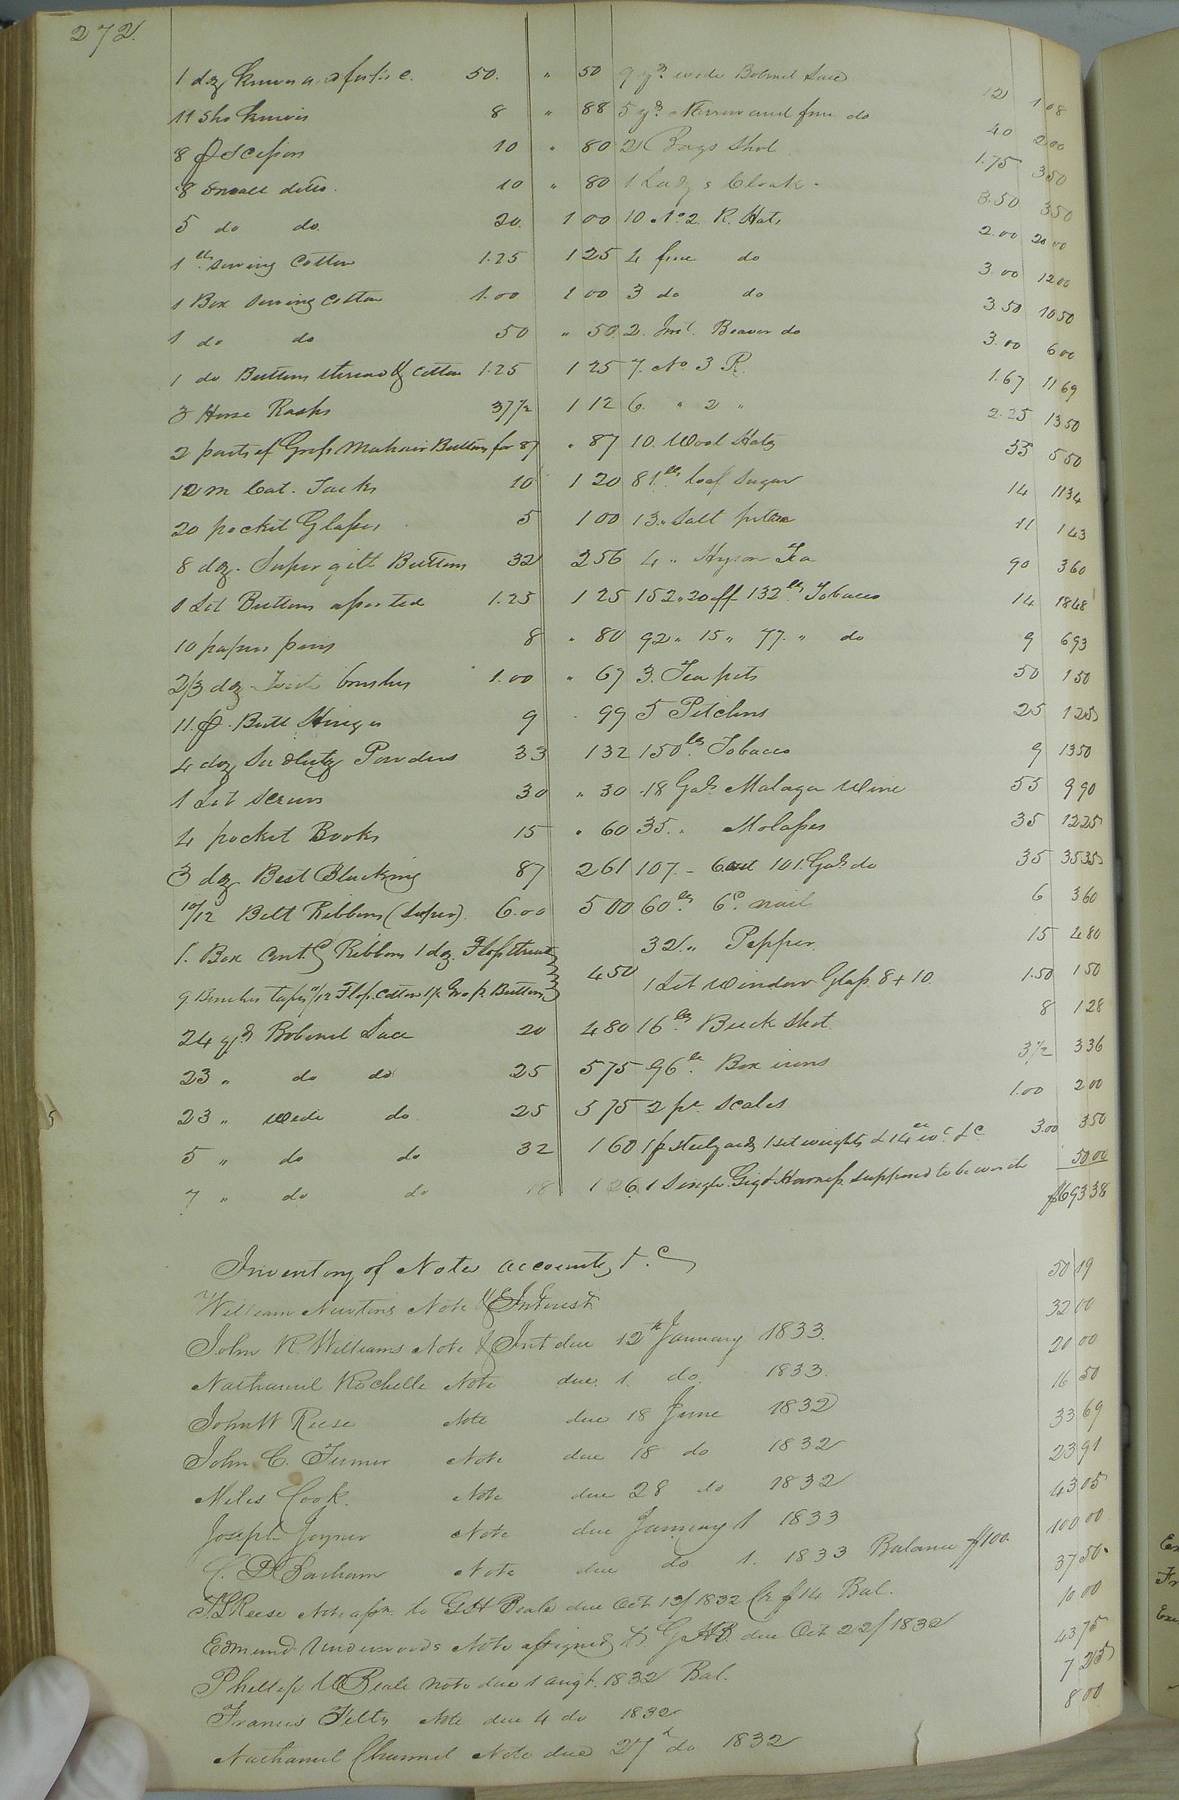 272.
1 dz knives and forks c. 50. " 50
11 Sho knives 8 " 88
8 p Scissors 10 " 80
8 Small ditto. 10 " 80
5 do do. 20. 1 00
1 lb sewing Cotton 1.25 1 25
1 Box Sewing Cotton 1.00 1 00
1 do do 50 " 50
1 do Buttons thread & Cotton 1.25 1 25
3 Horse Rasps 37½ 1 12
2 parts of Gross Mohair Buttons for 87 " 87
12 m Cut. Tacks 10 1 20
20 pocket Glasses 5 1 00
8 doz. Super gilt Buttons 32 2 56
1 Lot Buttons assorted 1.25 1 25
10 papers pins 8 " 80
2/3 doz Tooth brushes 1.00 " 67
11. p. Butt Hinges 9 99
4 doz Seidlitz Powders 33 1 32
1 Lot Screws 30 " 30
4 pocket Books 15 " 60
3 doz Best Blacking 87 2 61
10/12 Belt Ribbons (super) 6.00 5 00
1. Box Cont.g Ribbons 1 doz. Floss thread
9 Bunches tapes 9/12 Floss Cotton 1 p. Gross Buttons 4 50
24 yds Bobinet Lace 20 4 80
23 " do do 25 5 75
23 " wide do 25 5 75
5 " do do 32 1 60
7 " do do 18 1 26
9 yds wide Bobinet Lace 12 1 08
5 yds Narrow and fine do 40 2.00
2 Bags Shot 1.75 3 50
1 Ladys Cloak - 3.50 3 50
10 No 2 R. Hats 2.00 20 00
4 fine do 3.00 12 00
3 do do 3.50 10 50
2. Imt. Beaver do 3.00 6 00
7. No 3 R. 1.67 11 69
6. " 2 " 2.25 13 50
10. Wool Hats 55 5 50
81 lbs loaf Sugar 14 11 34
13 " Salt petre 11 1 43
4 " Hyson Tea 90 3 60
152 " 20 off 132 lbs Tobacco 14 18 48
92 " 15 " 77. " do 9 6 93
3. Tea pots 50 1 50
5 Pitchers 25 1 25
150 lbs Tobacco 9 13 50
18 Gals Malaga Wine 55 9 90
35. " Molasses 35 12 25
107. - 6 out 101. Gals do 35 35 35
60 lbs 6d. nails 6 3 60
32 " Pepper 15 4 80
1 Lot window Glass 8 + 10 1.50 1 50
16 lbs Buck Shot 8 1 28
96 lbs Box irons 3½ 3 36
2 pr Scales 1.00 2 00
1 p steelyards 1 set weights &c 3.00 3 50
1 Single Gig & Harness supposed to be worth 50 00
$693 38
Inventory of Notes accounts &c
William Newtons Note & Interest 50 19
John R. Williams Note & Int due 12th January 1833. 32 00
Nathaniel Rochelle Note due. 1. do. 1833. 20 00
John W Reese Note due 18 June 1832 16 50
John C. Turner Note due 18 do 1832 33 69
Miles Cook. Note due 28 do 1832 23 91
Joseph Joyner Note due January 1 1833 43 05
Barham Note due do 1. 1833 Balance $100. 100 00
Reese Note assn. to G H Beale due Oct 13/1832 Cr $14 Bal. 37 50
Edmund Underwoods Note assigned to G H B. due Oct 22/1832 10 00
Phillip W Beale note due 1 Augt. 1832 Bal. 43 75
Francis Felts Note due 4 do 1832 7 25
Nathaniel Channel Note due 27d do 1832 8 00